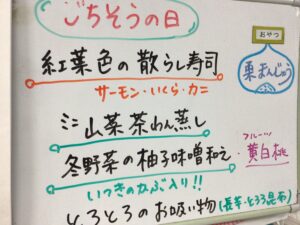 ごちそうの日
紅葉色の散らし寿司
サーモン・いくら・カニ
ミニ山菜茶わん蒸し
冬野菜の柚子味噌和え・
いつきのかぶ入り!!
とろとろのお吸い物(長芋・とろろ昆布)
おやつ
栗まんじゅう
フルーツ
黄白桃